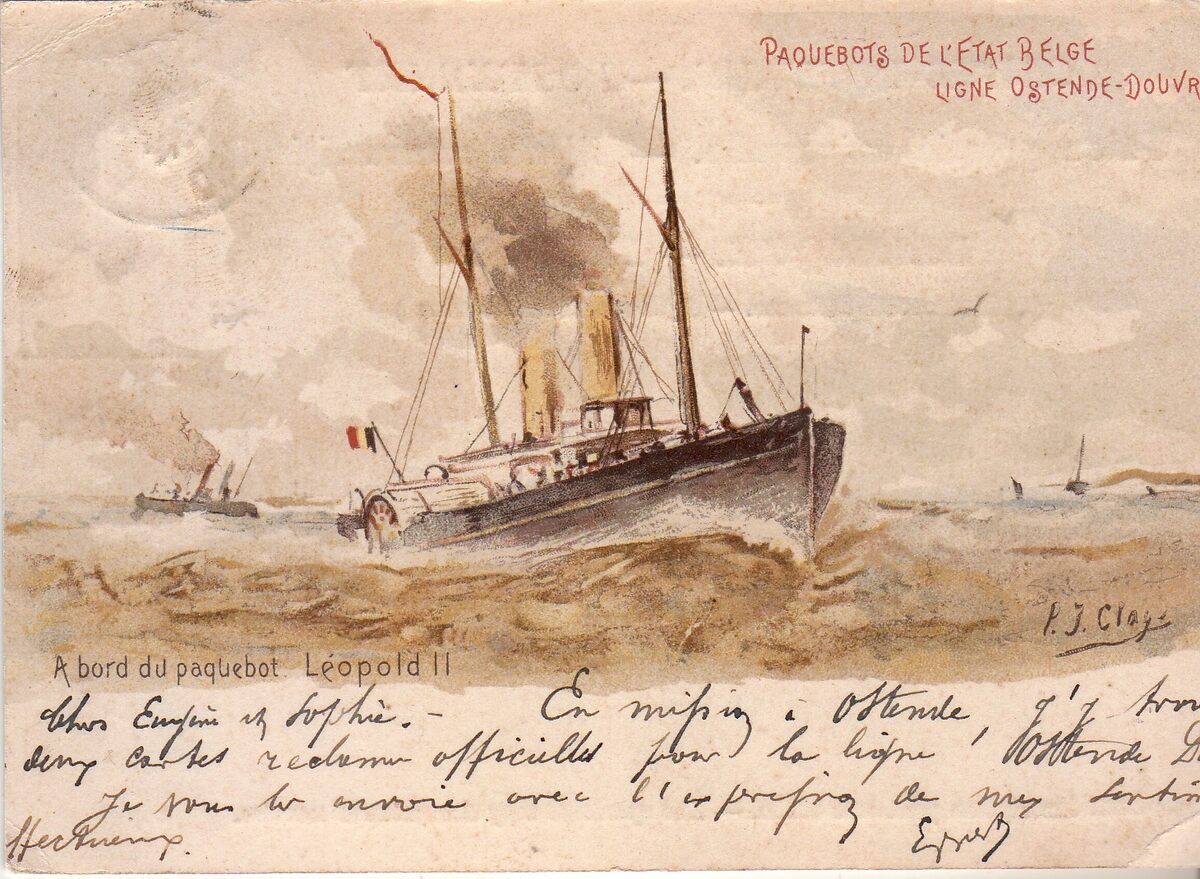 PAQUEBOTS DE L'ETAT BELGE
LIGNE OSTENDE-DOUVR
P. J. Clays
A bord du paquebot Léopold II
Chers Eugène et Sophie. - En mission à Ostende, j'y trou
deux cartes reclame officielles pour la ligne Ostende D
Je vous les envoie avec l'expression de mes sentim
ffectueux.